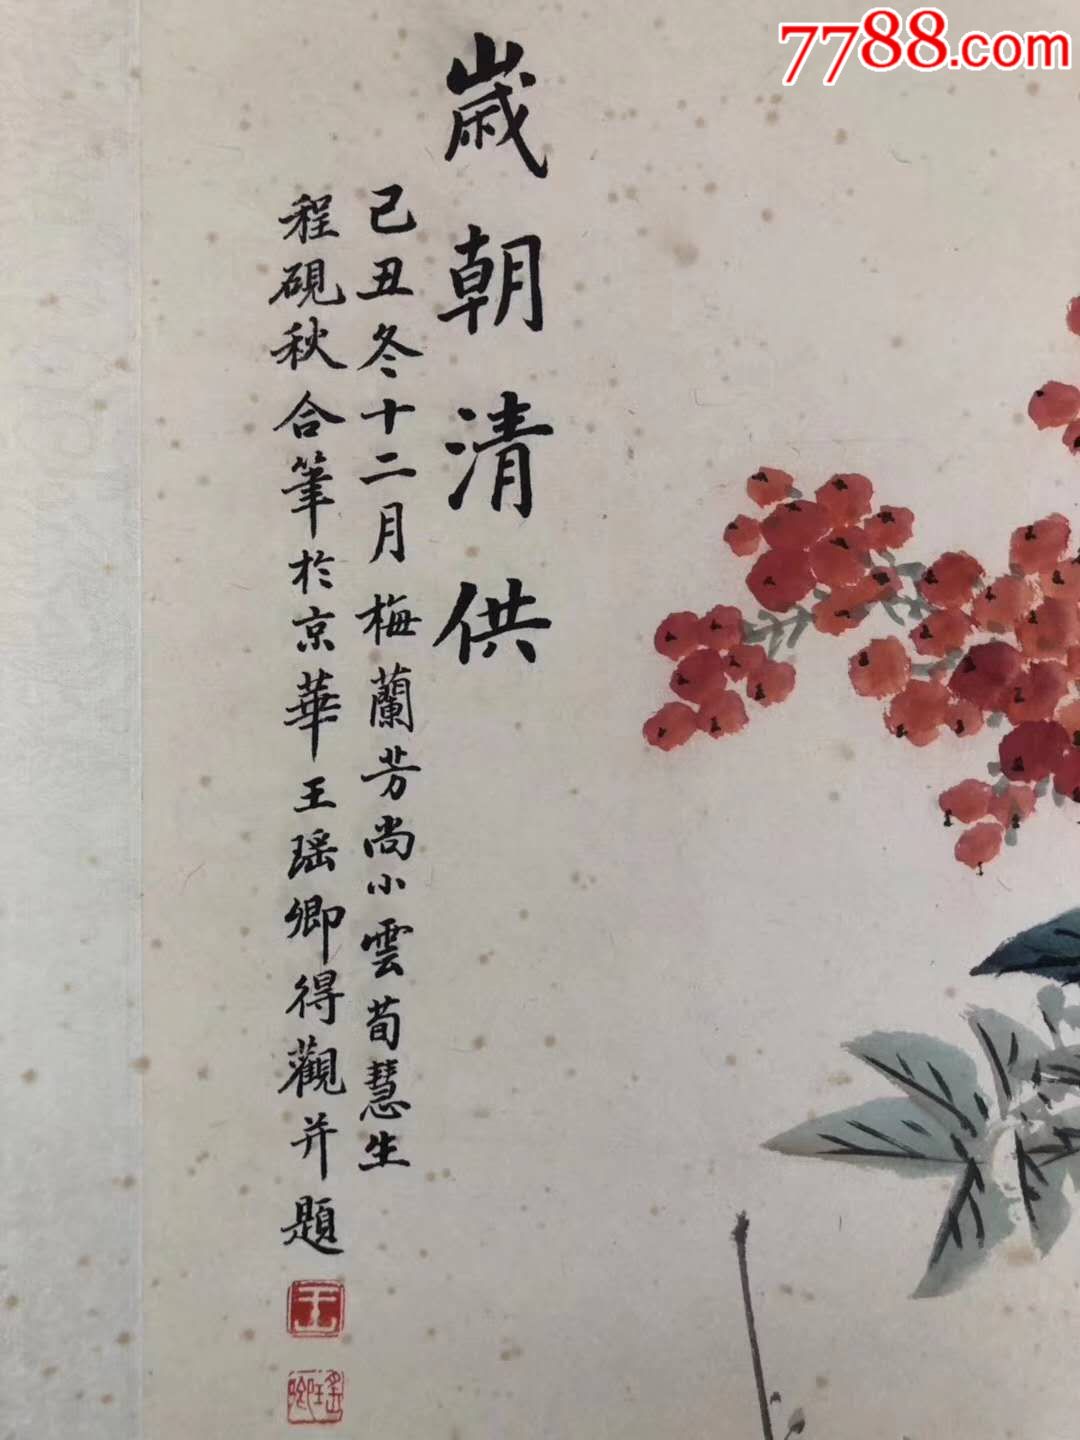 7788.com
歲朝清供
己丑冬十二月梅蘭芳尚小雲荀慧生
程硯秋合筆於京華王瑶卿得觀并題
王
瑶卿